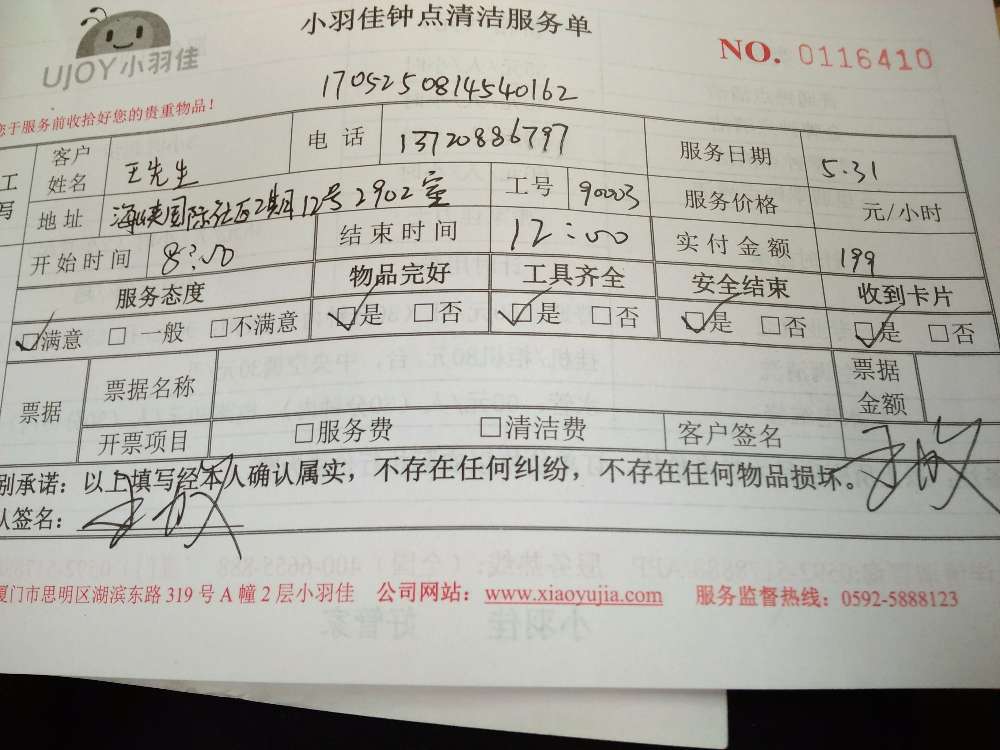 小羽佳钟点清洁服务单
UJOY小羽佳
NO. 0116410
1705250814540162
您于服务前收拾好您的贵重物品！
工 客户姓名 王先生 电话 13720886797 服务日期 5.31
写 地址 海峡国际社区2期12号2902室 工号 90003 服务价格 元/小时
开始时间 8:00 结束时间 12:00 实付金额 199
服务态度 物品完好 工具齐全 安全结束 收到卡片
☑满意 □一般 □不满意 ☑是 □否 ☑是 □否 ☑是 □否 ☑是 □否
票据 票据名称 票据金额
开票项目 □服务费 □清洁费 客户签名
别承诺：以上填写经本人确认属实，不存在任何纠纷，不存在任何物品损坏。
认签名：
厦门市思明区湖滨东路319号A幢2层小羽佳 公司网站：www.xiaoyujia.com 服务监督热线：0592-5888123